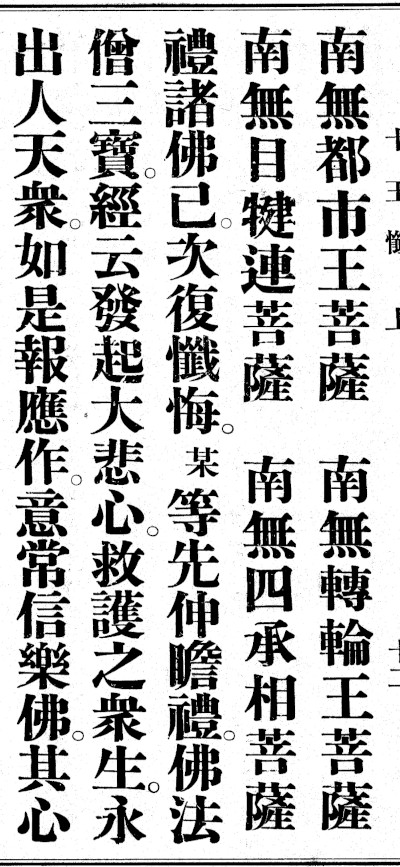 十王懺 上 十二
南無都市王菩薩 南無轉輪王菩薩
南無目犍連菩薩 南無四承相菩薩
禮諸佛已。次復懺悔。某等先伸瞻禮。佛法
僧三寶。經云發起大悲心。救護之衆生。永
出人天衆。如是報應作。意常信樂佛。其心